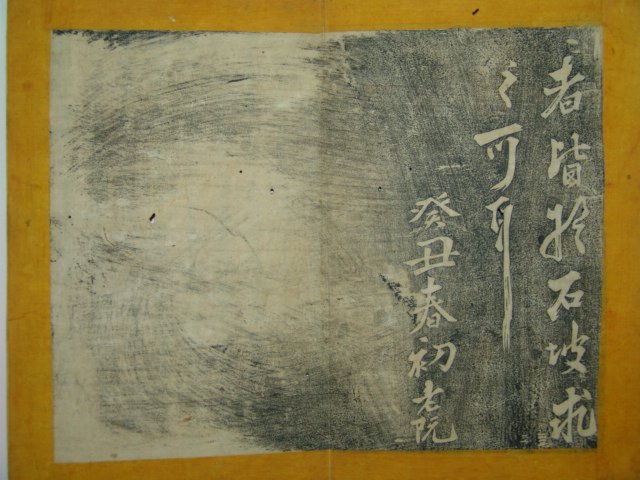 者皆於石坡求
之可耳
癸丑春初老阮